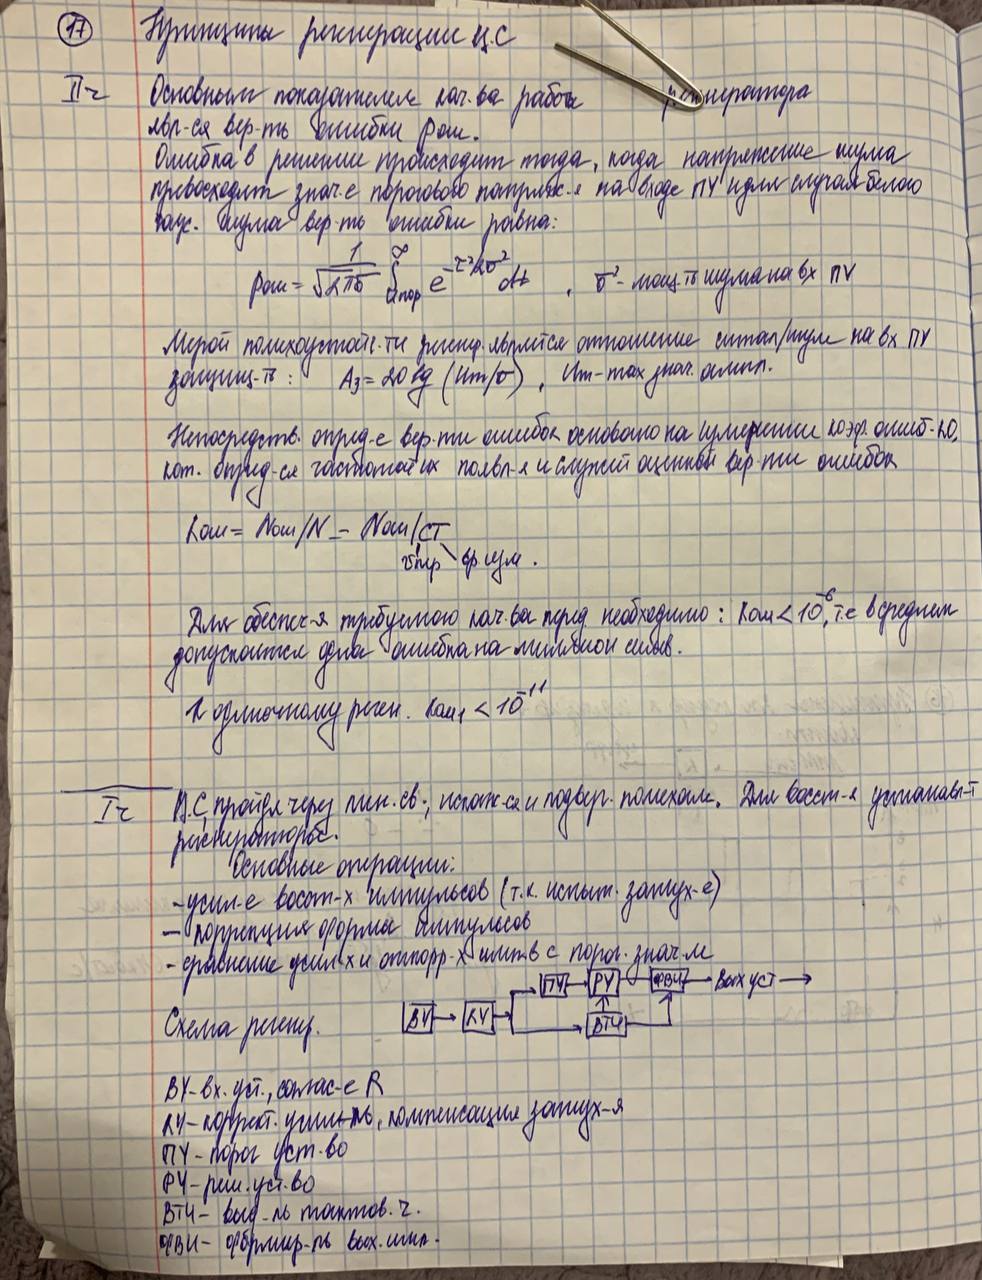 17 Принципы регенерации ц.с
II ч Основным показателем кач-ва работы регенератора
явл-ся вер-ть ошибки Pош.
Ошибка в решение происходит тогда, когда напряжение шума
превосходит знач-е порогового напряж-я на входе ПУ и для случая белого
гаус. шума вер-ть ошибки равна:
Pош = 1/√2πσ ∫ Uпор ∞ e^-τ²/2σ² dt , σ² - мощ-ть шума на вх ПУ
Мерой помехоустойч-ти реген. является отношение сигнал/шум на вх ПУ
защищ-ть: Aз = 20 lg (Um/σ) , Um - max знач. ампл.
Непосредств. опред-е вер-ти ошибок основано на измерении коэф. ошиб-КО,
кот. опред-ся частотой их появл-я и служит оценкой вер-ти ошибок
Kош = Nош/N = Nош/CT
вр изм.
Для обеспеч-я требуемого кач-ва перед необходимо: Kош < 10^-6, т.е в среднем
допускается одна ошибка на миллион симв.
К одиночному реген. Kош1 < 10^-11
I ч Ц.С, пройдя через лин. св., искаж-ся и подверг. помехам. Для восст-я устанавл-т
регенераторы.
Основные операции:
- усил-е восст-х импульсов (т.к. испыт. затух-е)
- коррекция формы импульсов
- сравнение усил-х и откорр-х имп-в с порог. знач-м
ПУ РУ ФВИ Вых уст
Схема регенер. ВУ КУ ВТЧ
ВУ - вх. уст., соглас-е R
КУ - коррект. усилит-ль, компенсация затух-я
ПУ - порог уст-во
РУ - реш. уст-во
ВТЧ - выд-ль тактов. ч.
ФВИ - формир-ль вых. имп.